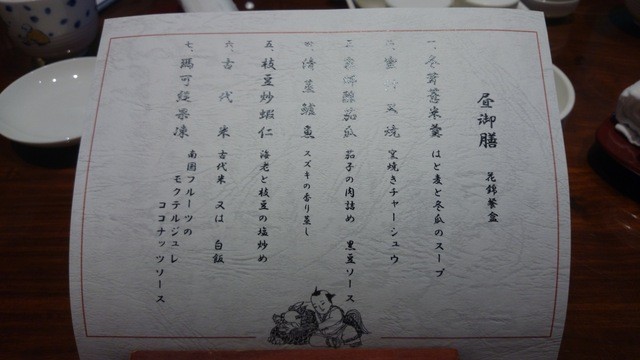 昼御膳 花錦餐盒
一、冬芽薏米羹 はと麦と冬瓜のスープ
叉焼 窯焼きチャーシュウ
茄瓜 茄子の肉詰め 黒豆ソース
清蒸鱸魚 スズキの香り蒸し
五、枝豆炒蝦仁 海老と枝豆の塩炒め
六、古代米 古代米 又は 白飯
七、瑪可 果凍 南国フルーツの
モクテルジュレ
ココナッツソース